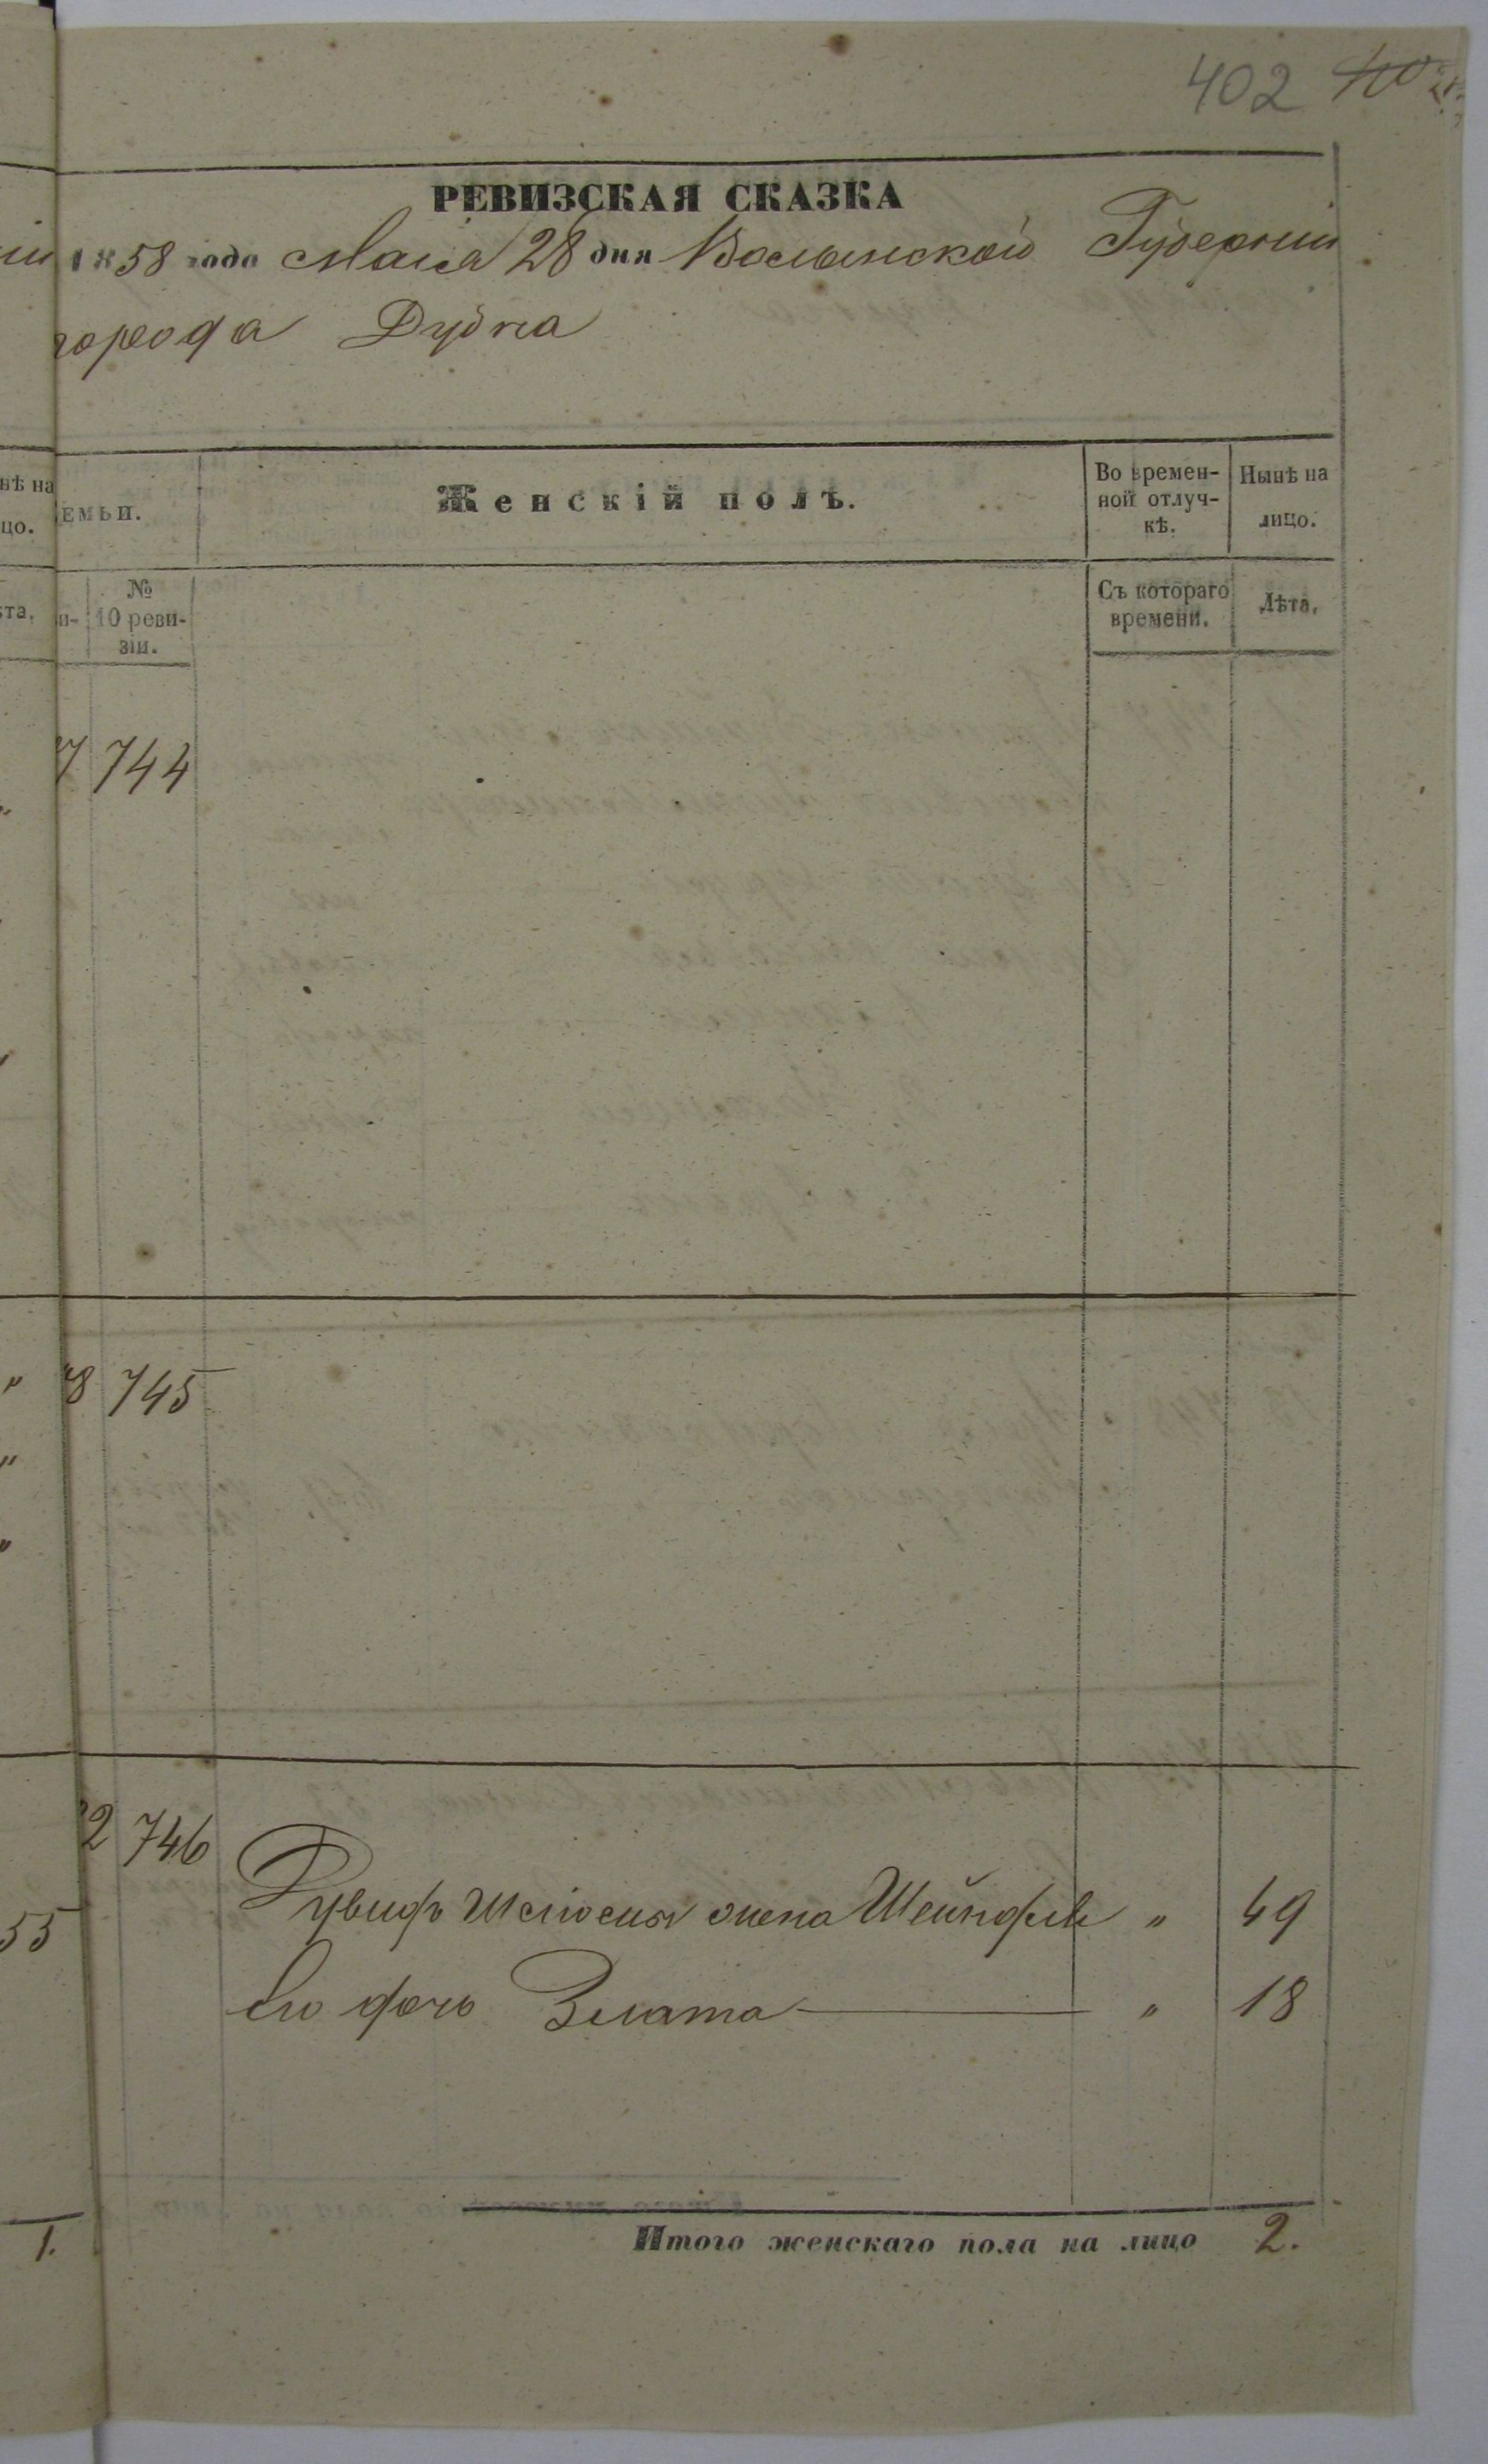 402
РЕВИЗСКАЯ СКАЗКА
1858 года Маія 28 дня Волынской Губерніи
города Дубна
нѣ на
цо.
ЕМЬИ.
Женскій полъ.
Во времен-
ной отлуч-
кѣ.
Нынѣ на
лицо.
ѣта,
и-
№
10 реви-
зіи.
Съ котораго
времени.
Лѣта,
7 744
" 8 745
"
"
2 746
55
жена Шейндля " 49
Его дочь Злата " 18
1.
Итого женскаго пола на лицо 2.